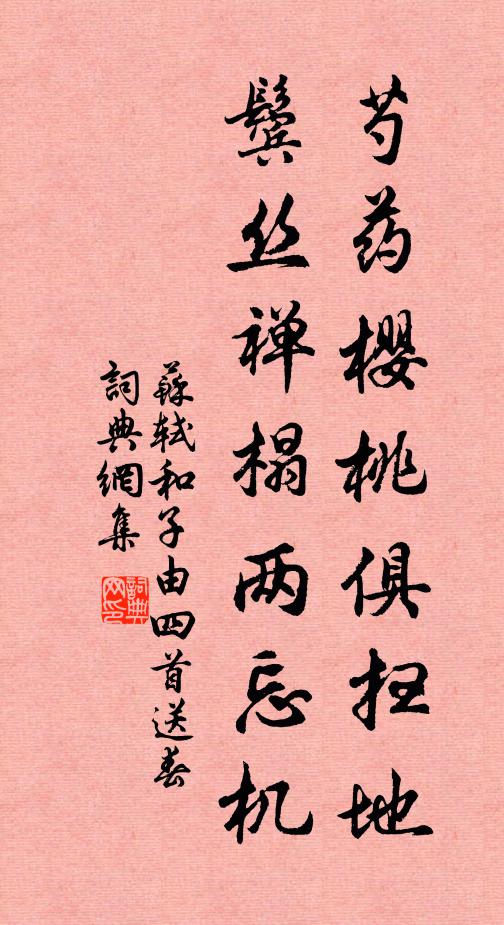 芍药樱桃俱扫地
鬓丝禅榻两忘机
蘇轼和子由四首送春
詞典網集
詞典网印